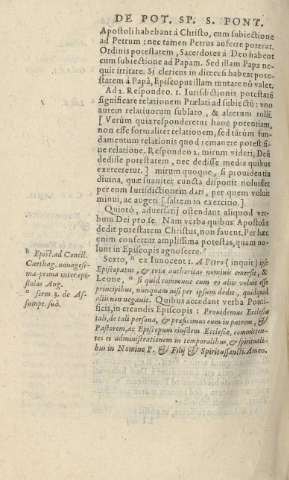 DE POT. SP. S. PONT.
Apostoli habebant à Christo, cum subiectione
ad Petrum: nec tamen Petrus auferre poterat.
Ordinis potestatem, Sacerdotes à Deo habent
cum subiectione ad Papam. Sed illam Papa ne-
quit irritare. Si clericus in diœcesi habeat pote-
statem à Papa, Episcopus illam mutare nõ valet.
Ad 2. Respondeo. 1. Iurisdictionis potestatẽ
significare relationem Prælati ad subiectũ: vno
autem relatiuorum sublato, & alterum tolli.
[ Verùm quia responderetur hanc potentiam,
non esse formaliter relationem, sed tãtùm fun-
damentum relationis quod remanere potest si-
ne relatione. Respondeo 2. mirum videri, Deũ
dedisse potestatem, nec dedisse media quibus
exerceretur. ] mirum quoque, si prouidentia
diuina, quæ suauiter cuncta disponit noluisset
per eum Iurisdictionem dari, per quem voluit
minui, ac augeri [ saltem in exercitio. ]
Quintò, aduersarij ostendant aliquod ver-
bum Dei pro se. Nam verba quibus Apostolis
dedit potestatem Christus, non fauent, Per hæc
enim conferetur amplissima potestas, quam no-
lunt in Episcopis agnoscere.
Sexto, h ex Innocent 1. A Petro (inquit) ipse
Episcopatus, & tota authoritas nominis emersit, &
Leone, n si quid commune cum eo alijs voluit esse
principibus, nunquam nisi per ipsum dedit, quidquid
alijs non negauit. Quibus accedant verba Ponti-
ficis, in creandis Episcopis: Prouidemus Ecclesiæ
tali, de tali persona, & præficimus eum in patrem, &
Pastorem, ac Episcopum eiusdem Ecclesiæ, committen-
tes ei administrationem in temporalibus, & spirituali-
bus in Nomine P. & Filij & Spiritussancti Amen.
h Epist. ad Concil.
Carthag. nonagesi-
ma-prima inter epi-
stolas Aug.
n serm 3. de As-
sumpt. sua.